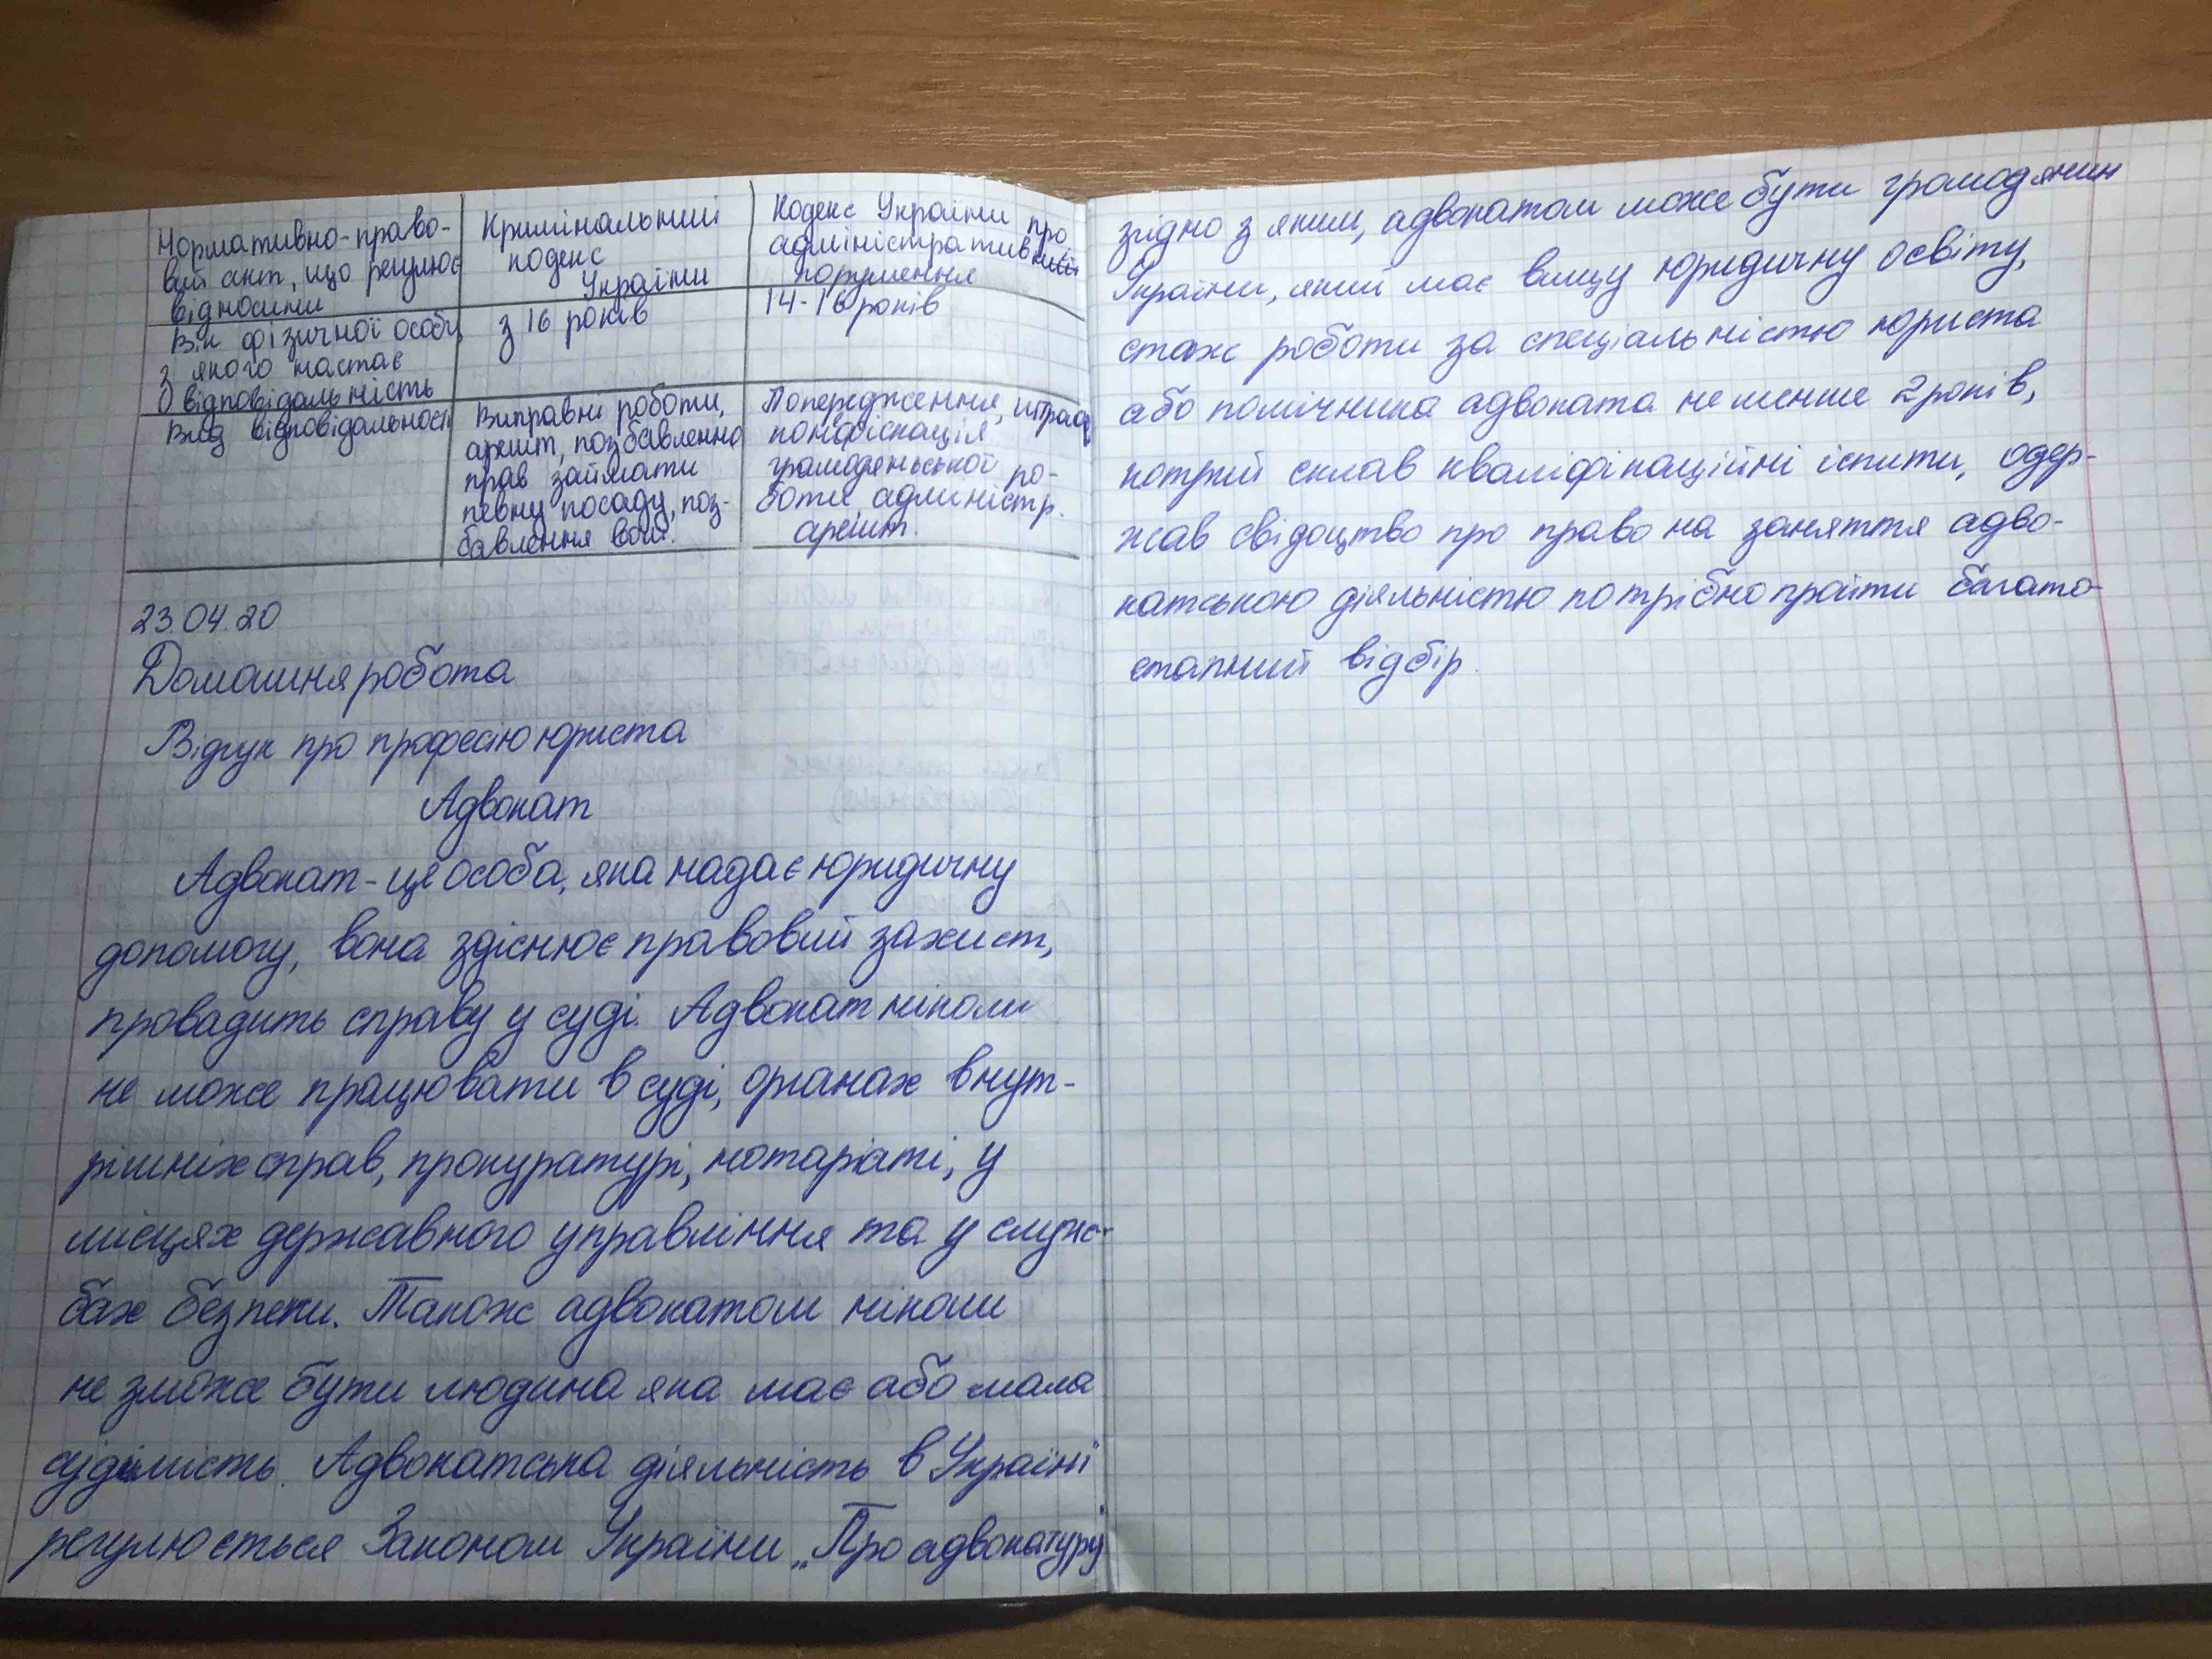 Нормативно-право-
вий акт, що регулює
відносини
Кримінальний
кодекс
України
Кодекс України про
адміністративні
порушення
Вік фізичної особи,
з якого настає
відповідальність
з 16 років
14-16 років
Вид відповідальності
Виправні роботи,
арешт, позбавленно
прав займати
певну посаду, поз-
бавлення волі.
Попередження, штраф,
конфіскація
громодянської ро-
боти, адміністр.
арешт.
23.04.20
Домашня робота
Відгук про професію юриста
Адвокат
Адвокат - це особа, яка надає юридичну
допомогу, вона здіснює правовий захист,
провадить справу у суді. Адвокат ніколи
не може працювати в суді, органах внут-
рішніх справ, прокуратурі, нотаріаті, у
місцях державного управління та у служ-
бах безпеки. Також адвокатом ніколи
не зможе бути людина яка має або мала
судимість. Адвокатська діяльність в Україні
регулюється Законом України „Про адвокатуру"
згідно з яким, адвокатом може бути громодянин
України, який має вищу юридичну освіту,
стаж роботи за спеціальністю юриста
або помічника адвоката не менше 2 років,
котрий склав кваліфікаційні іспити, одер-
жав свідоцтво про право на заняття адво-
катською діяльністю потрібно пройти багато-
етапний відбір.